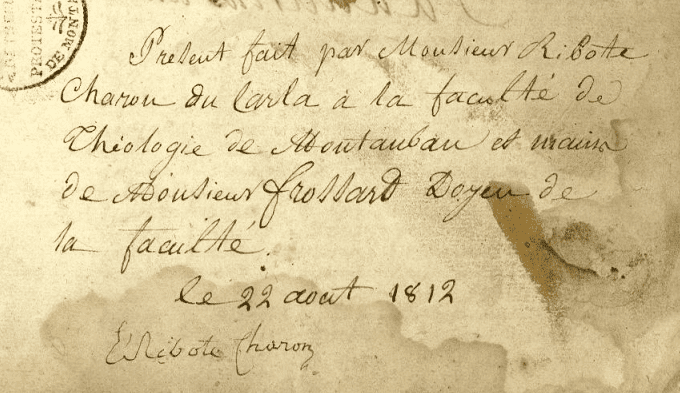 PROTESTAN
DE MONT
Present fait par Monsieur Ribotte
Charon du Carla a la faculté de
Théologie de Montauban et mains
de Monsieur frossard Doyen de
la faculté.
le 22 aout 1812
Ribote Charon